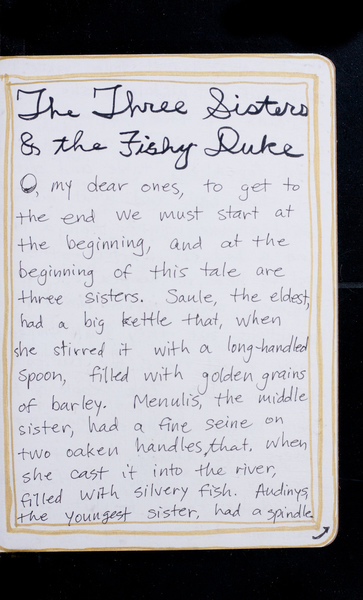 The Three Sisters
& the Fishy Duke
O, my dear ones, to get to
the end we must start at
the beginning, and at the
beginning of this tale are
three sisters. Saule, the eldest,
had a big kettle that, when
she stirred it with a long-handled
spoon, filled with golden grains
of barley. Menulis, the middle
sister, had a fine seine on
two oaken handles, that, when
she cast it into the river,
filled with silvery fish. Audinys,
the youngest sister, had a spindle